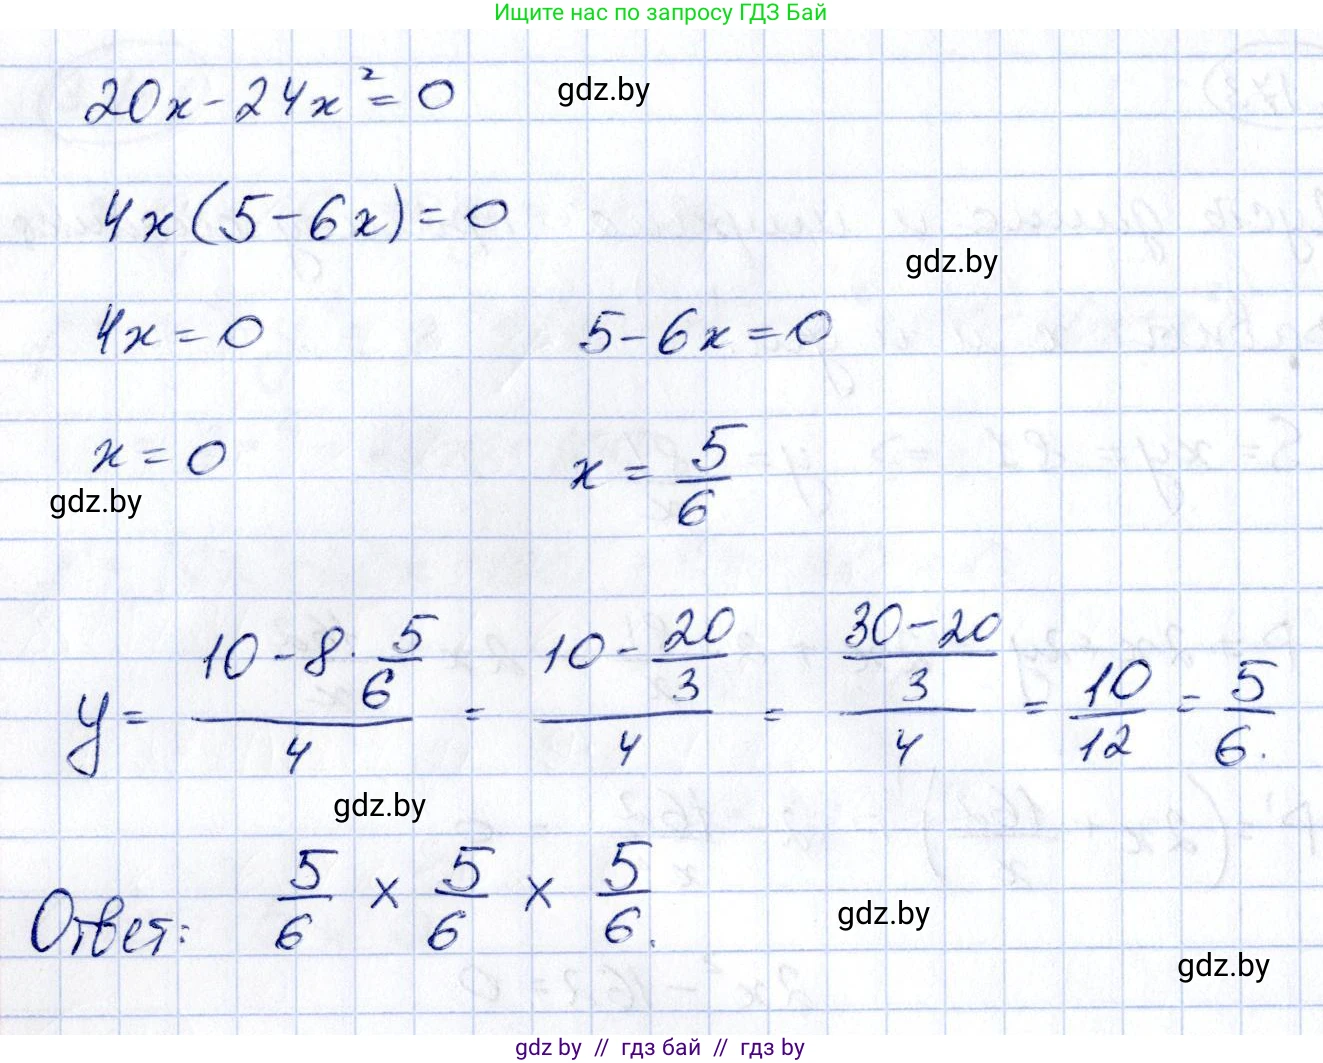 Ищите нас по запросу ГДЗ Бай
20x - 24x² = 0
gdz.by
4x(5 - 6x) = 0
gdz.by
4x = 0    5 - 6x = 0
x = 0    x = 5/6
gdz.by
y = (10 - 8 · 5/6)/4 = (10 - 20/3)/4 = ((30 - 20)/3)/4 = 10/12 = 5/6.
gdz.by
Ответ: 5/6 × 5/6 × 5/6.
gdz.by
gdz.by
gdz by // гдз бай // гдз by